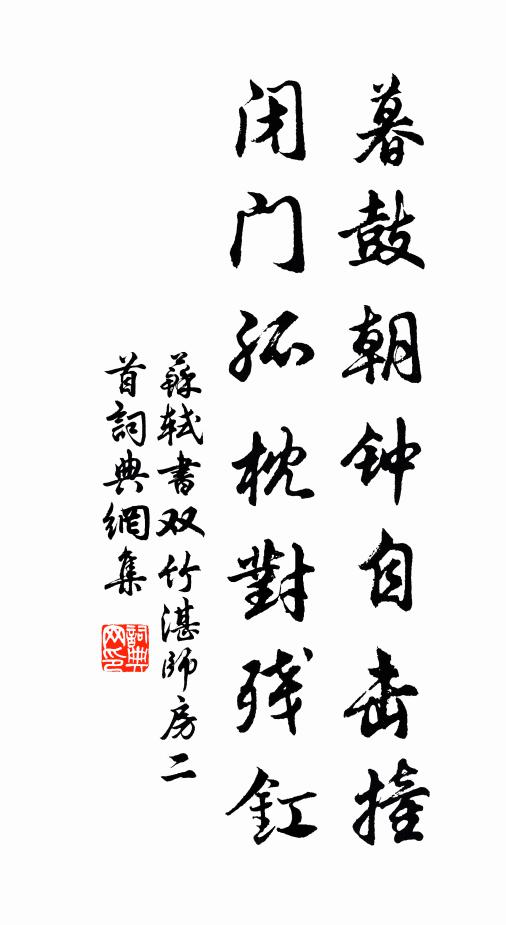 暮鼓朝钟自击撞
闭门孤枕對残釭
蘇軾書双竹湛師房二
首詞典網集
詞典
网印